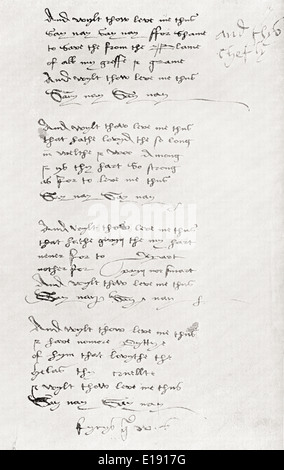 And wylt thow leve me thus
Say nay Say nay ffor shame
to save the from the blame
of all my greffe & grame
And wylt thow leve me thus
Say nay Say nay
And wylt thow leve me thus
that hathe lovyd the so long
in welthe & woo Among
& ys thy hart So strong
as for to leve me thus
Say nay Say nay
And wylt thow leve me thus
that hathe gevyn the my hart
never for to Depart
nother for payn nor smart
And wylt thow leve me thus
Say nay Say nay
And wylt thow leve me thus
& have nomore pyttye
of hym that lovythe the
helas thy cruellte
& wylt thow leve me thus
Say nay Say nay
And thys
chefly
fynys qd
alamy
alamy
E1917G